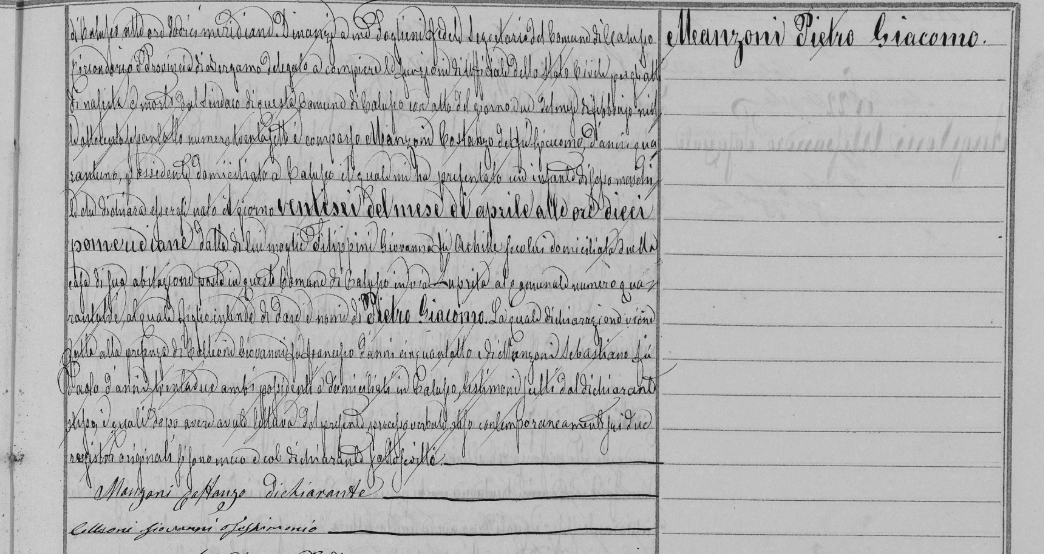 di Calusco alle ore dodici meridiane. Dinanzi a me Segretario del Comune di Calusco
Circondario e Provincia di Bergamo delegato a compiere le funzioni di Ufficiale dello Stato Civile per gli atti
di nascita e morte dal Sindaco di questo Comune di Calusco con atto del giorno due del mese di febbrajo mille
ottocento numero è comparso Manzoni Costanzo del fu Giacomo, d'anni qua
rantuno, possidente domiciliato a Calusco il quale mi ha presentato un infante di sesso maschi
le che dichiara essergli nato il giorno ventisei del mese di aprile alle ore dieci
pomeridiane dalla di lui moglie Filippini Giovanna fu Achille secolui domiciliata nella
casa di sua abitazione posta in questo Comune di Calusco in via al comunale numero qua
al quale figlio intende di dare il nome di Pietro Giacomo. La quale dichiarazione viene
fatta alla presenza di Colleoni Giovanni fu Francesco d'anni cinquantotto e di Manzoni Sebastiano fu
Paolo d'anni trentadue ambi possidenti e domiciliati in Calusco, testimoni scelti dal dichiarante
stesso, i quali dopo avere avuta lettura del presente processo verbale steso contemporaneamente sui due
registri originali si sono meco e col dichiarante sottoscritti.
Manzoni Costanzo dichiarante
Colleoni Giovanni testimonio
Manzoni Pietro Giacomo.